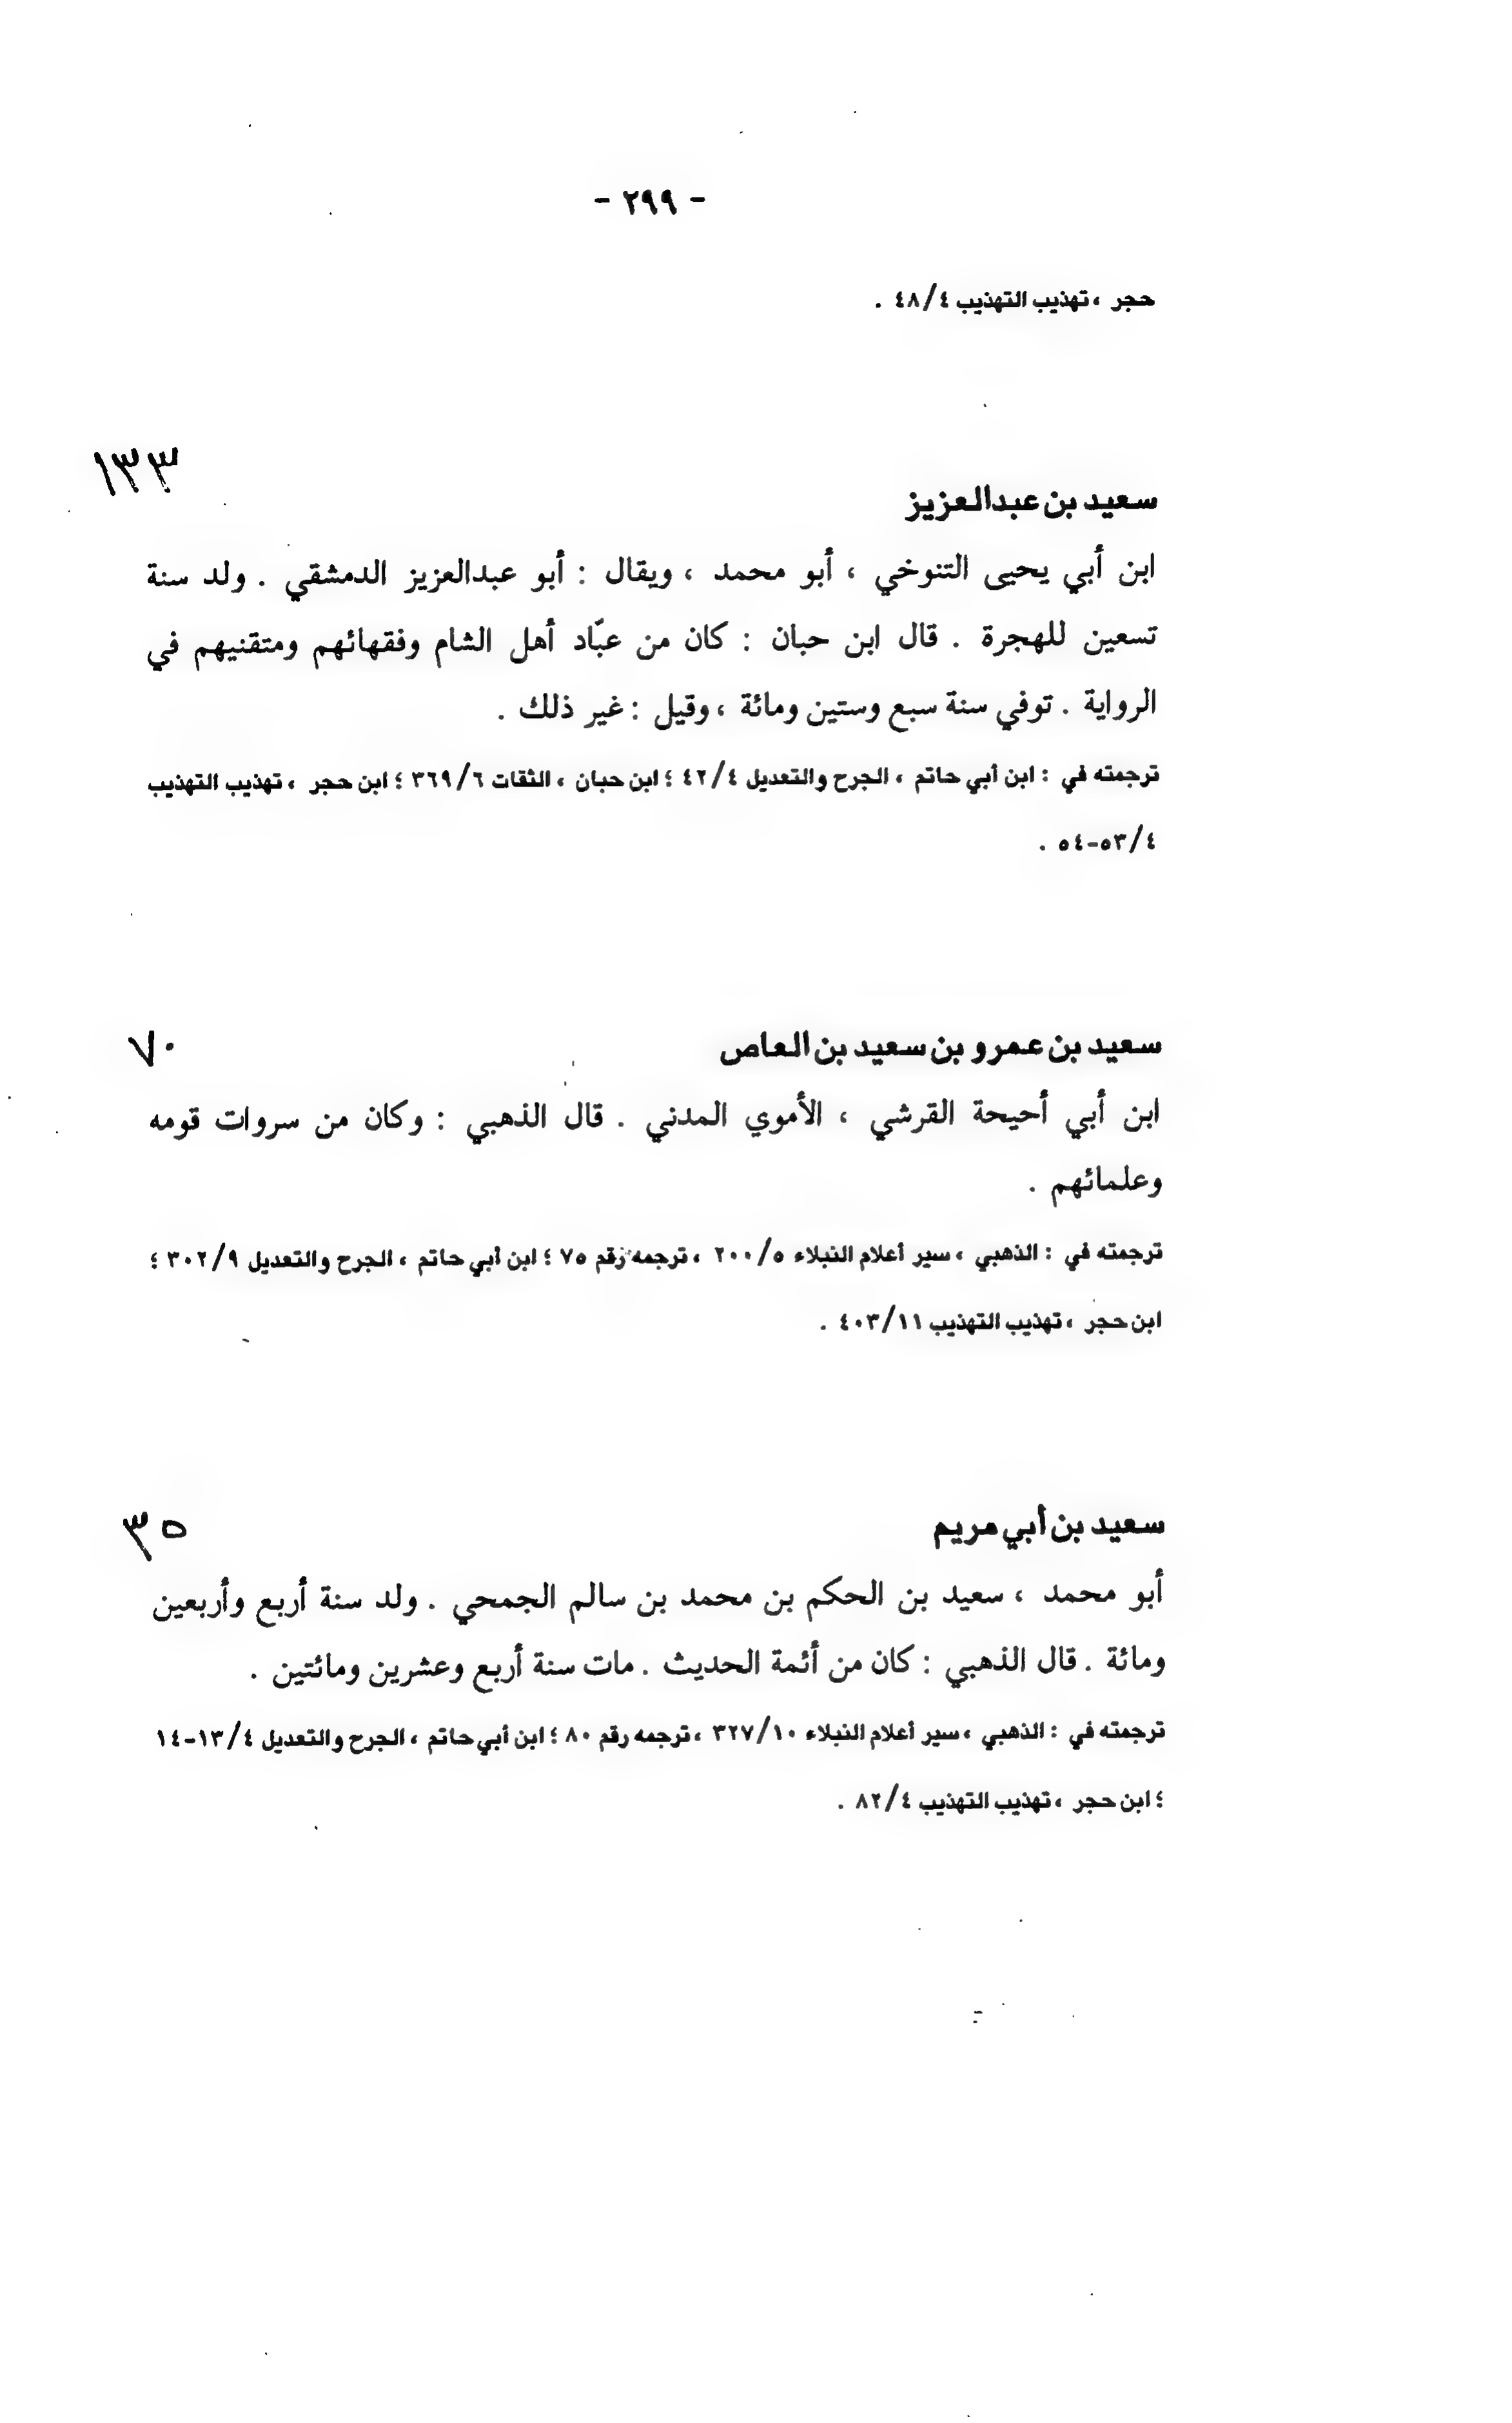 - ٢٩٩ -
حجر ، تهذيب التهذيب ٤/ ٤٨ .
١٣٣
سعيد بن عبدالعزيز
ابن أبي يحيى التنوخي ، أبو محمد ، ويقال : أبو عبدالعزيز الدمشقي . ولد سنة
تسعين للهجرة . قال ابن حبان : كان من عبّاد أهل الشام وفقهائهم ومتقنيهم في
الرواية . توفي سنة سبع وستين ومائة ، وقيل : غير ذلك .
ترجمته في : ابن أبي حاتم ، الجرح والتعديل ٤/ ٤٢ ؛ ابن حبان ، الثقات ٦/ ٣٦٩ ؛ ابن حجر ، تهذيب التهذيب
٤/ ٥٣-٥٤ .
سعيد بن عمرو بن سعيد بن العاص ٧٠
ابن أبي أحيحة القرشي ، الأموي المدني . قال الذهبي : وكان من سروات قومه
وعلمائهم .
ترجمته في : الذهبي ، سير أعلام النبلاء ٥/ ٢٠٠ ، ترجمه رقم ٧٥ ؛ ابن أبي حاتم ، الجرح والتعديل ٩/ ٣٠٢ ؛
ابن حجر ، تهذيب التهذيب ١١/ ٤٠٣ .
سعيد بن أبي مريم ٣٥
أبو محمد ، سعيد بن الحكم بن محمد بن سالم الجمحي . ولد سنة أربع وأربعين
ومائة . قال الذهبي : كان من أئمة الحديث . مات سنة أربع وعشرين ومائتين .
ترجمته في : الذهبي ، سير أعلام النبلاء ١٠/ ٣٢٧ ، ترجمه رقم ٨٠ ؛ ابن أبي حاتم ، الجرح والتعديل ٤/ ١٣-١٤
؛ ابن حجر ، تهذيب التهذيب ٤/ ٨٢ .